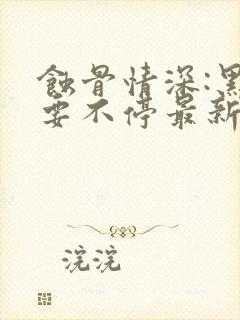 蝕骨情深:黑
要不停最新
浣浣